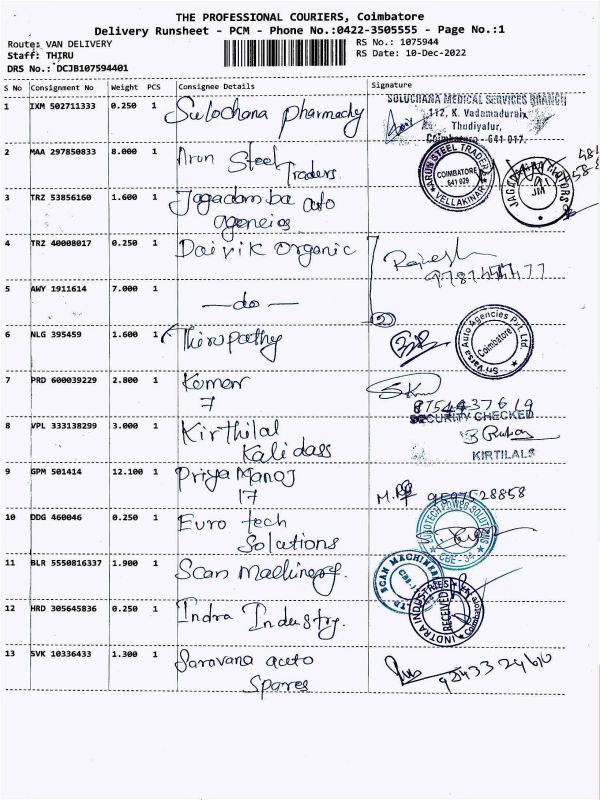 THE PROFESSIONAL COURIERS, Coimbatore
Delivery Runsheet - PCM - Phone No.:0422-3505555 - Page No.:1
Route: VAN DELIVERY
Staff: THIRU
DRS No.: DCJB107594401
RS No.: 1075944
RS Date: 10-Dec-2022
S No Consignment No Weight PCS Consignee Details Signature
1 IXM 502711333 0.250 1 Sulochana pharmacy
SULUCHANA MEDICAL SERVICES BRANCH
112, K. Vadamadurai,
Thudiyalur,
Coimbatore - 641 017.
2 MAA 297850833 8.000 1 Arun Steel
Traders.
ARUN STEEL TRADERS
COIMBATORE
641 029
VELLAKINAR
3 TRZ 53856160 1.600 1 Jagadamba auto
agencies
4 TRZ 40008017 0.250 1 Daivik organic
Rajesh
5 AWY 1911614 7.000 1 — do —
2
6 NLG 395459 1.600 1 Thirupathy
Sri Varsa Auto Agencies Pvt. Ltd.
Coimbatore
7 PRD 600039229 2.800 1 Kumar
7
8754437619
8 VPL 333138299 3.000 1 Kirthilal
Kalidass
SECURITY CHECKED
KIRTILALS
9 GPM 501414 12.100 1 Priya Manoj
17
9597528858
10 DDG 460046 0.250 1 Euro tech
Solutions
EUROTECH POWER SOLUTIONS
CBE - 34
11 BLR 5550816337 1.900 1 Scan Machinery.
SCAN MACHINERY
12 HRD 305645836 0.250 1 Indra Industry.
INDTRA INDUSTRIES
RECEIVED
13 SVK 10336433 1.300 1 Saravana auto
Spares